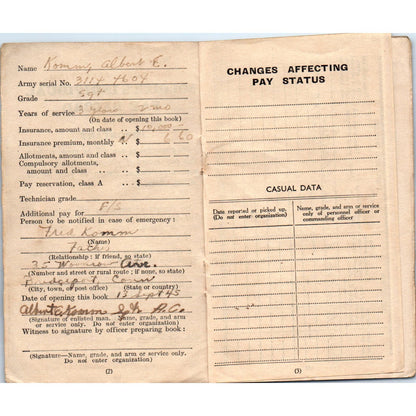 Name Komm, Albert E.
Army serial No. 3114 4604
Grade Sgt
Years of service 3 years 2 mo
(On date of opening this book)
Insurance, amount and class .. $10,000
Insurance premium, monthly $ 6 60
Allotments, amount and class ..
Compulsory allotments,
amount and class .. .. ..
Pay reservation, class A ..
Technician grade
Additional pay for F/S
Person to be notified in case of emergency:
Fred Komm
(Name)
Father
(Relationship: if friend, so state)
Ave.
(Number and street or rural route; if none, so state)
Bridgeport Conn
(City, town, or post office) (State or country)
Date of opening this book 13 Sept 45
Albert E Komm
(Signature of enlisted man. Name, grade, and arm
or service only. Do not enter organization)
Witness to signature by officer preparing book:
(Signature—Name, grade, and arm or service only.
Do not enter organization)
(2)
CHANGES AFFECTING
PAY STATUS
CASUAL DATA
Date reported or picked up.
(Do not enter organization)
Name, grade, and arm or service
only of personnel officer or
commanding officer
(3)